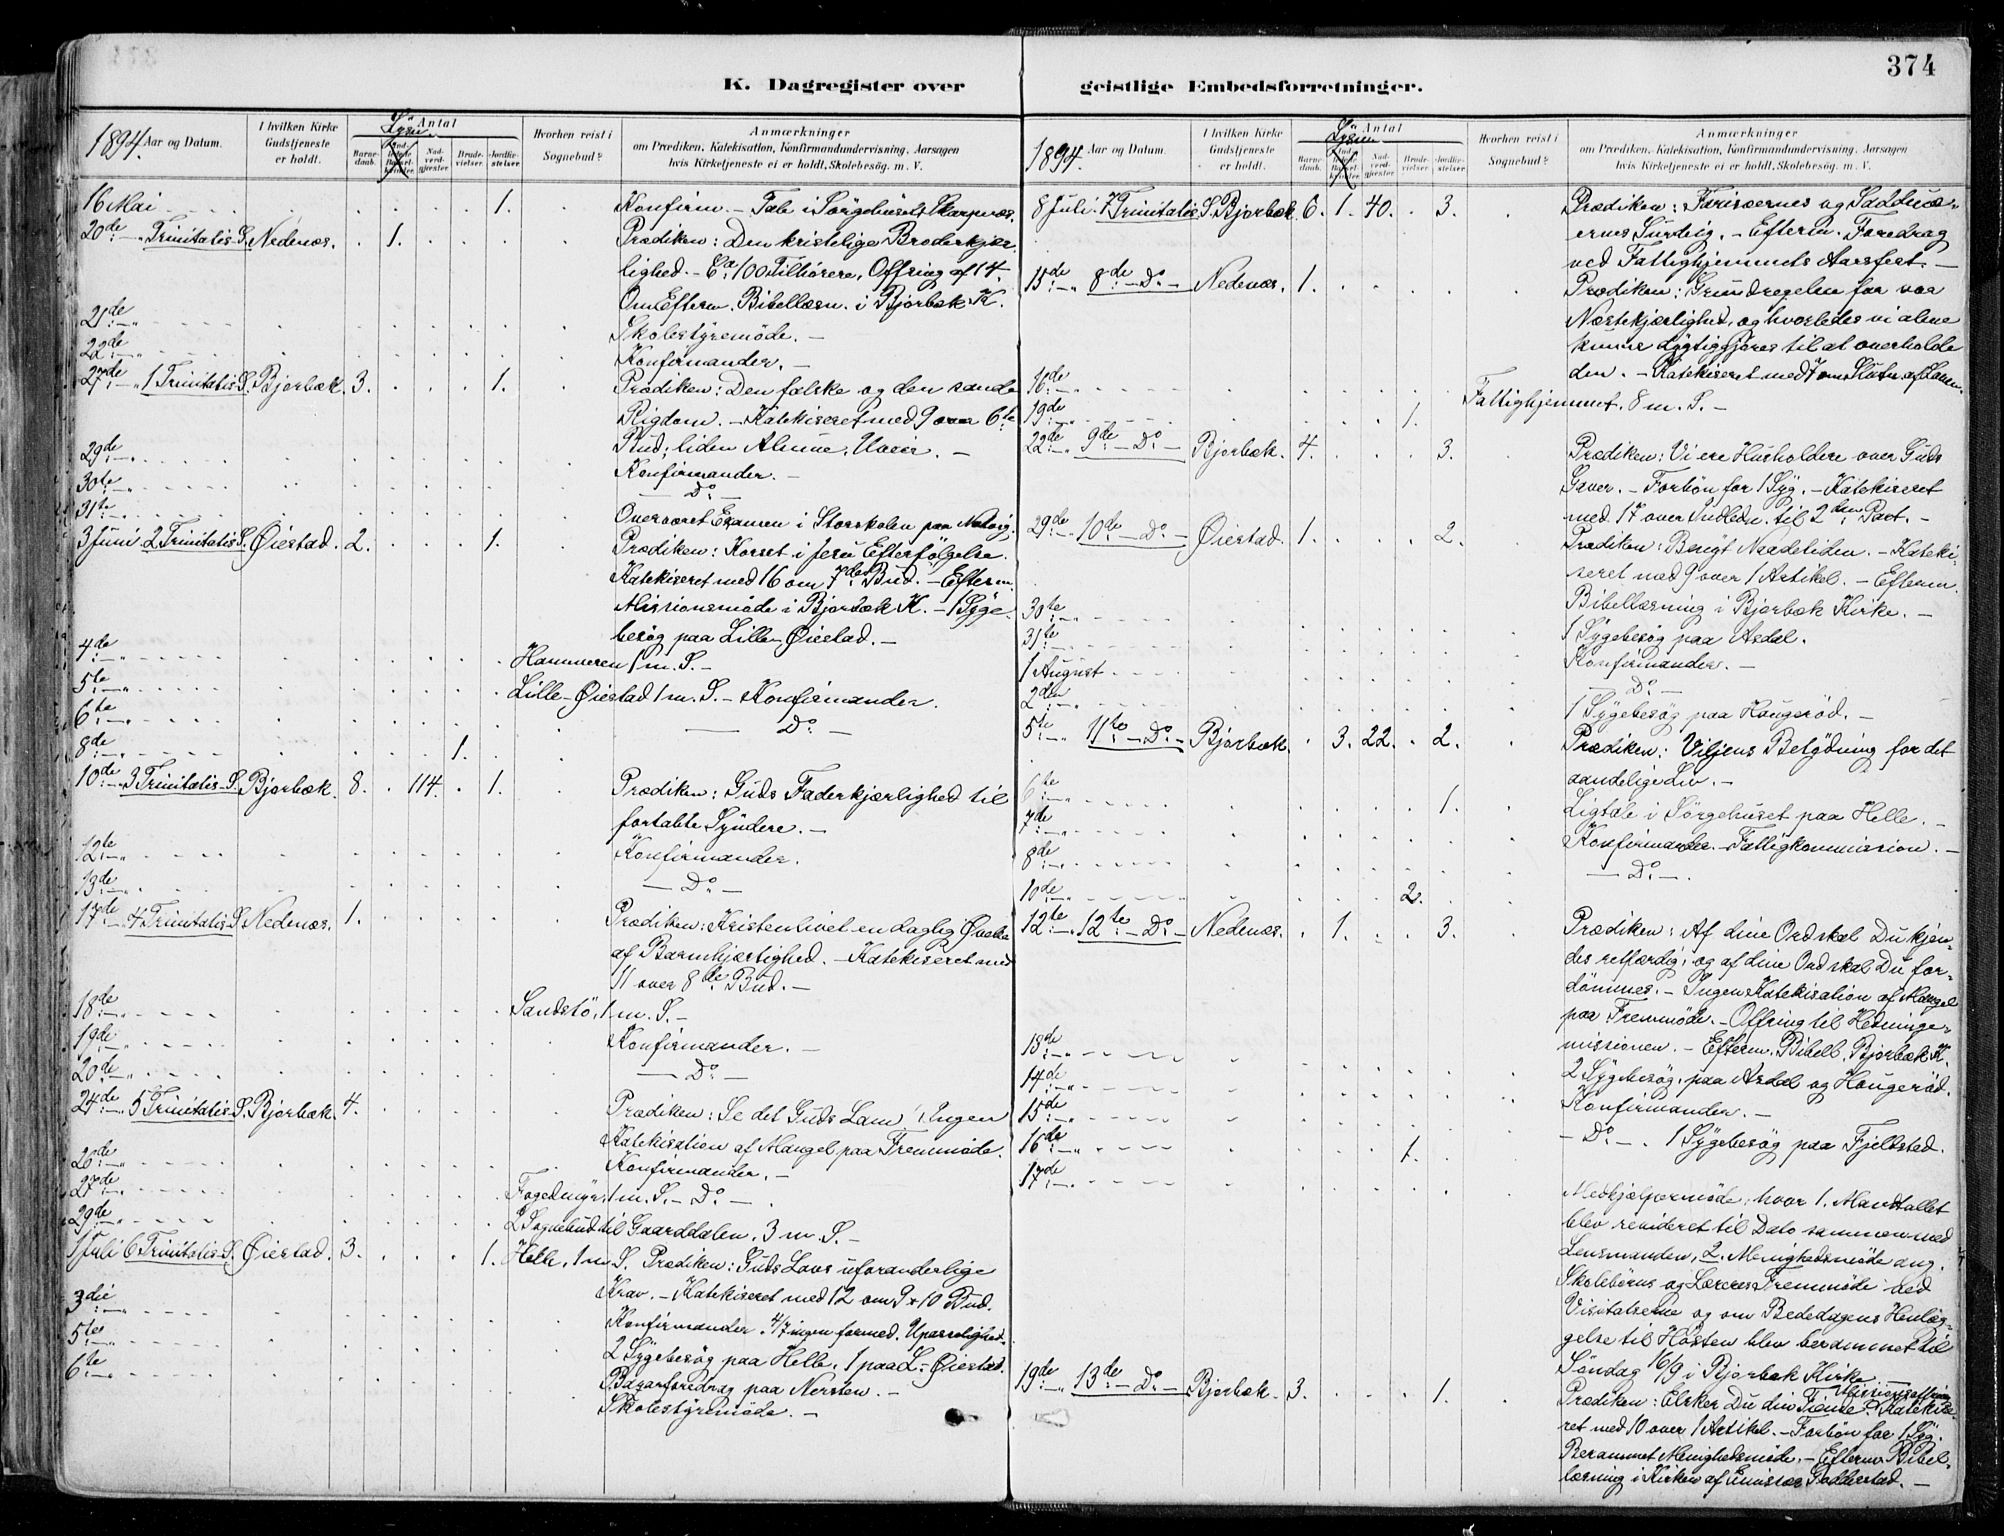 374
K. Dagregister over geistlige Embedsforretninger.
1894. Aar og Datum.
I hvilken Kirke Gudstjeneste er holdt.
Antal
Lysn.
Barnedaab.
Nadverdgjester.
Brudevielser.
Jordfæstelser.
Hvorhen reist i Sognebud?
Anmærkninger
om Prædiken, Katekisation, Konfirmandundervisning, Aarsagen
hvis Kirketjeneste ei er holdt, Skolebesög. m. V.
16 Mai 1. Konfirm. - Tale i Sørgehuset, Skarpnæs.
20de Trinitatis S. Nedenæs. 1. Prædiken: Den kristelige Broderkjær
lighed. - Ca. 100 Tilhørere, Offring af 14.
Om Efterm. Bibellæsn. i Bjorbæk K.
21de Skolestyremöde. -
22de Konfirmander. -
27de 1 Trinitatis S. Bjorbæk. 3. 1. Prædiken: Den falske og den sande
Rigdom. - Katekiseret med 9 over 6te
Bud; liden Almue; Uveir. -
29de Konfirmander. -
30te - Do -
31te Overværet Examen i Storskolen paa
3 Juni 2 Trinitatis S. Øiestad. 2. 1. Prædiken: Korset i Jesu Efterfölgelse.
Katekiseret med 16 om 7de Bud. - Efterm.
Missionsmøde i Bjorbæk K. - 1 Syge
besøg paa Lille-Øiestad. -
4de Hammeren 1 m. S. -
5te Lille-Øiestad 1 m. S. - Konfirmander.
6te - Do -
8de 1.
10de 3 Trinitatis S. Bjorbæk. 8. 114. 1. Prædiken: Guds Faderkjærlighed til
fortabte Syndere. -
12te Konfirmander.
13de - Do -
17de 4 Trinitatis S. Nedenæs. 1. Prædiken: Kristenlivet en daglig Øvelse
af Barmhjærtighed. - Katekiseret med
11 over 8de Bud. -
18de Sandstö, 1 m. S. -
19de Konfirmander. -
20de - Do -
24de 5 Trinitatis S. Bjorbæk. 4. Prædiken: Se det Guds Lam! Ingen
Katekisation af Mangel paa Fremmøde.
26de Konfirmander. -
27de Fogedmyr, 1 m. S. - Do -
29de 2 Sognebud til Gaarddalen, 3 m. S. -
1 Juli 6 Trinitatis S. Øiestad. 3. 1. Helle, 1 m. S. Prædiken: Guds Lovs uforanderlige
Krav. - Katekiseret med 12 om 9 + 10 Bud.
3die Konfirmander. 4/7 ingen formed. Upasselighed.
5te 2 Sygebesøg paa Helle, 1 paa L. Øiestad.
6te Bazarforedrag paa Nersten. -
Skolestyremöde. -
1894. Aar og Datum.
I hvilken Kirke Gudstjeneste er holdt.
Antal
Lysn.
Barnedaab.
Nadverdgjester.
Brudevielser.
Jordfæstelser.
Hvorhen reist i Sognebud?
Anmærkninger
om Prædiken, Katekisation, Konfirmandundervisning, Aarsagen
hvis Kirketjeneste ei er holdt, Skolebesög. m. V.
8 Juli 7 Trinitatis S. Bjorbæk 6. 1. 40. 3. Prædiken: Farisæernes og Sadducæ-
ernes Surdeig. - Efterm. Foredrag
ved Fattighjemmets Aarsfest. -
15de 8de Do Nedenæs. 1. Prædiken: Grundregelen for vor
Næstekjærlighed, og hvorledes vi alene
kunne dygtiggjøres til at overholde
den. - Katekiseret med 7 om Slutn. af Loven.
16de Fattighjemmet. 8 m. S. -
19de 1.
22de 9de Do Bjorbæk. 4. 3. Prædiken: Vi ere Husholdere over Guds
Gaver. - Forbön for 1 Syg. - Katekiseret
med 17 over Indledn. til 2den Part. -
29de 10de Do Øiestad. 1. 2. Prædiken: Benyt Naadetiden. - Kateki-
seret med 9 over 1 Artikel. - Efterm.
Bibellæsning i Bjorbæk Kirke. -
30te 1 Sygebesøg paa Asdal.
31te Konfirmander. -
1 August - Do -
2den 1 Sygebesøg paa Haugeröd. -
5te 11te Do Bjorbæk. 3. 22. 2. Prædiken: Viljens Betydning for det
aandelige Liv. -
6te 1. Ligtale i Sørgehuset paa Helle. -
7de Konfirmander. - Fattigkommission. -
8de - Do -
10de 2.
12te 12te Do Nedenæs. 1. 3. Prædiken: Af dine Ord skal Du kjen-
des retfærdig, og af dine Ord skal Du for-
dömmes. - Ingen Katekisation af Mangel
paa Fremmøde. - Offring til Hedninge-
missionen. - Efterm. Bibell. Bjorbæk K.
13de 2 Sygebesøg, paa Asdal og Haugeröd.
14de Konfirmander. -
15de - Do - 1 Sygebesøg paa Fjeldsted.
16de 1.
17de Medhjælpermøde, hvor 1. Mandtallet
blev revideret til Dato sammen med
Lensmanden, 2. Menighedsmøde ang.
Skolebörns og Læreres Fremmøde ved
Visitatserne og om Bededagens Henlæg-
gelse til Hösten blev berammet til
Söndag 16/9 i Bjorbæk Kirke
19de 13de Do Bjorbæk. 3. 1. Prædiken: Elsker Du din Fiende? Katekise-
Missionsoffring
ret med 10 over 1 Artikel. - Forbön for 1 Syg.
Berammet Menighedsmøde. - Efterm. Bibel-
læsning i Kirken af Emissær Godderstad. -